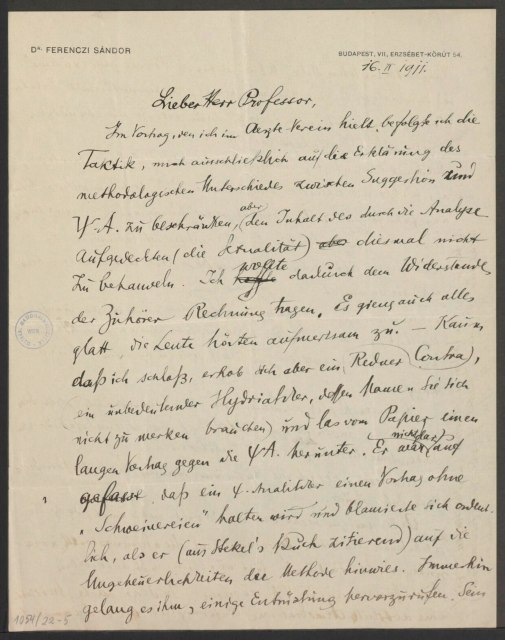 Dr. FERENCZI SÁNDOR
BUDAPEST, VII, ERZSÉBET-KÖRÚT 54.
16. II 1911.
Lieber Herr Professor,
Im Vortrag, den ich im Aerzte-Verein hielt, befolgte ich die
Taktik, mich ausschließlich auf die Erklärung des
methodologischen Unterschiedes zwischen Suggestion und
Ψ-A. zu beschränken, aber den Inhalt des durch die Analyse
Aufgedeckten (die Sexualität) aber diesmal nicht
zu behandeln. Ich wollte dadurch dem Widerstande
der Zuhörer Rechnung tragen. Es gieng auch alles
glatt, die Leute hörten aufmerksam zu. – Kaum,
daß ich schloß, erhob sich aber ein Redner (Contra),
(ein unbedeutender Hydriatiker, dessen Namen Sie sich
nicht zu merken brauchen) und las vom Papier einen
langen Vortrag gegen die Ψ A. herunter. Er war nicht darauf
gefasst, daß ein Ψ-Analytiker einen Vortrag ohne
„Schweinereien" halten wird und blamierte sich ordent-
lich, als er (aus Stekel's Buch zitierend) auf die
Ungeheuerlichkeiten der Methode hinwies. Immerhin
gelang es ihm, einige Entrüstung hervorzurufen. Sein
1084/22-5